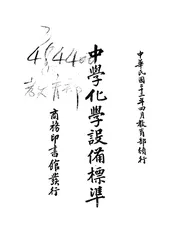 中華民國二十三年四月教育部頒行
中學化學設備標準
商務印書館發行
教育部